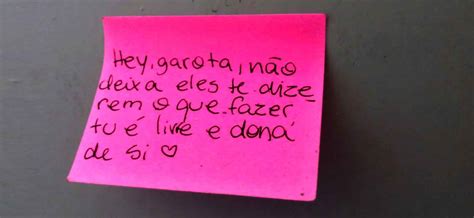 Hey, garota, não
deixa eles te dize
rem o que fazer
tu é livre e doná
de si ♡